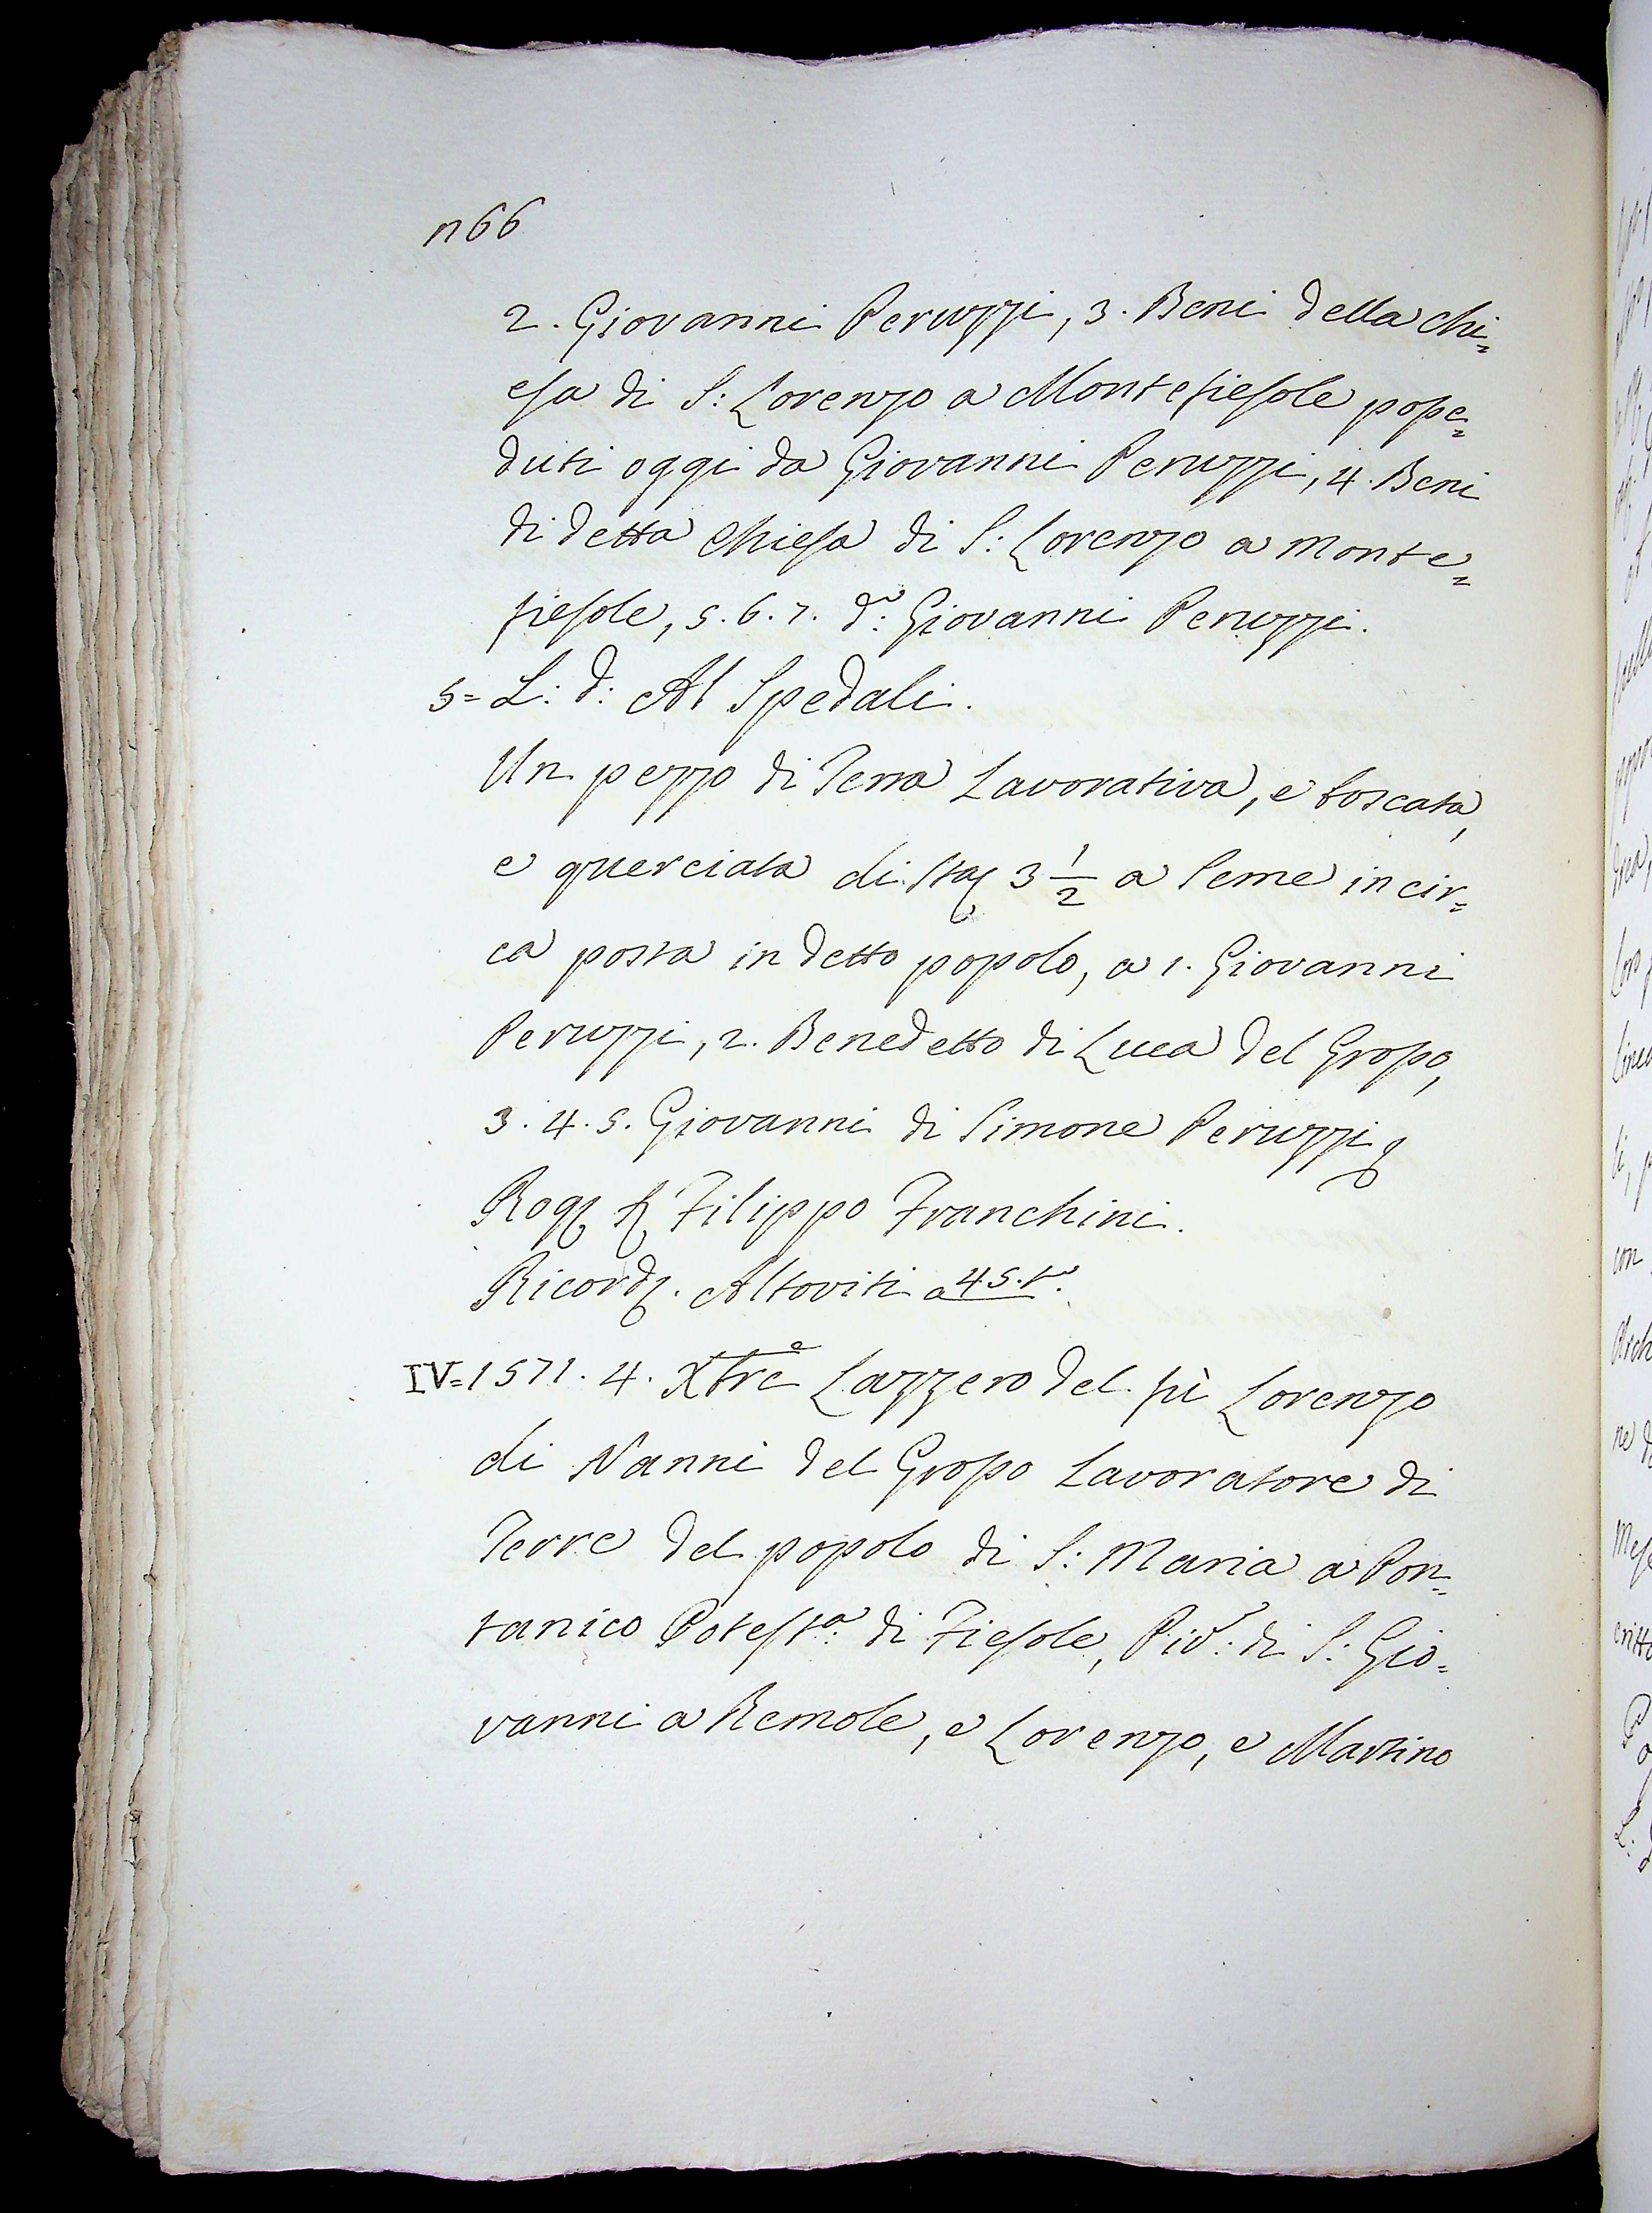 n66
2. Giovanni Peruzzi, 3. Beni della chi=
esa di S: Lorenzo a Montefiesole posse=
duti oggi da Giovanni Peruzzi, 4. Beni
di detta Chiesa di S: Lorenzo a Monte=
fiesole, 5. 6. 7. d.º Giovanni Peruzzi.
5= L: d: Al Spedali.
Un pezzo di Terra Lavorativa, e boscata,
e querciata di Sta 3 1/2 a Seme in cir=
ca posta in detto popolo, a 1. Giovanni
Peruzzi, 2. Benedetto di Luca del Grosso,
3. 4. 5. Giovanni di Simone Peruzzi
Rog Filippo Franchini.
Ricord. Altoviti a 45. tº.
IV=1571. 4. Xbre Lazzero del fù Lorenzo
di Nanni del Grosso Lavoratore di
Terre del popolo di S: Maria a Pon=
tanico Potestª: di Fiesole, Piv: di S: Gio=
vanni a Remole, e Lorenzo, e Martino